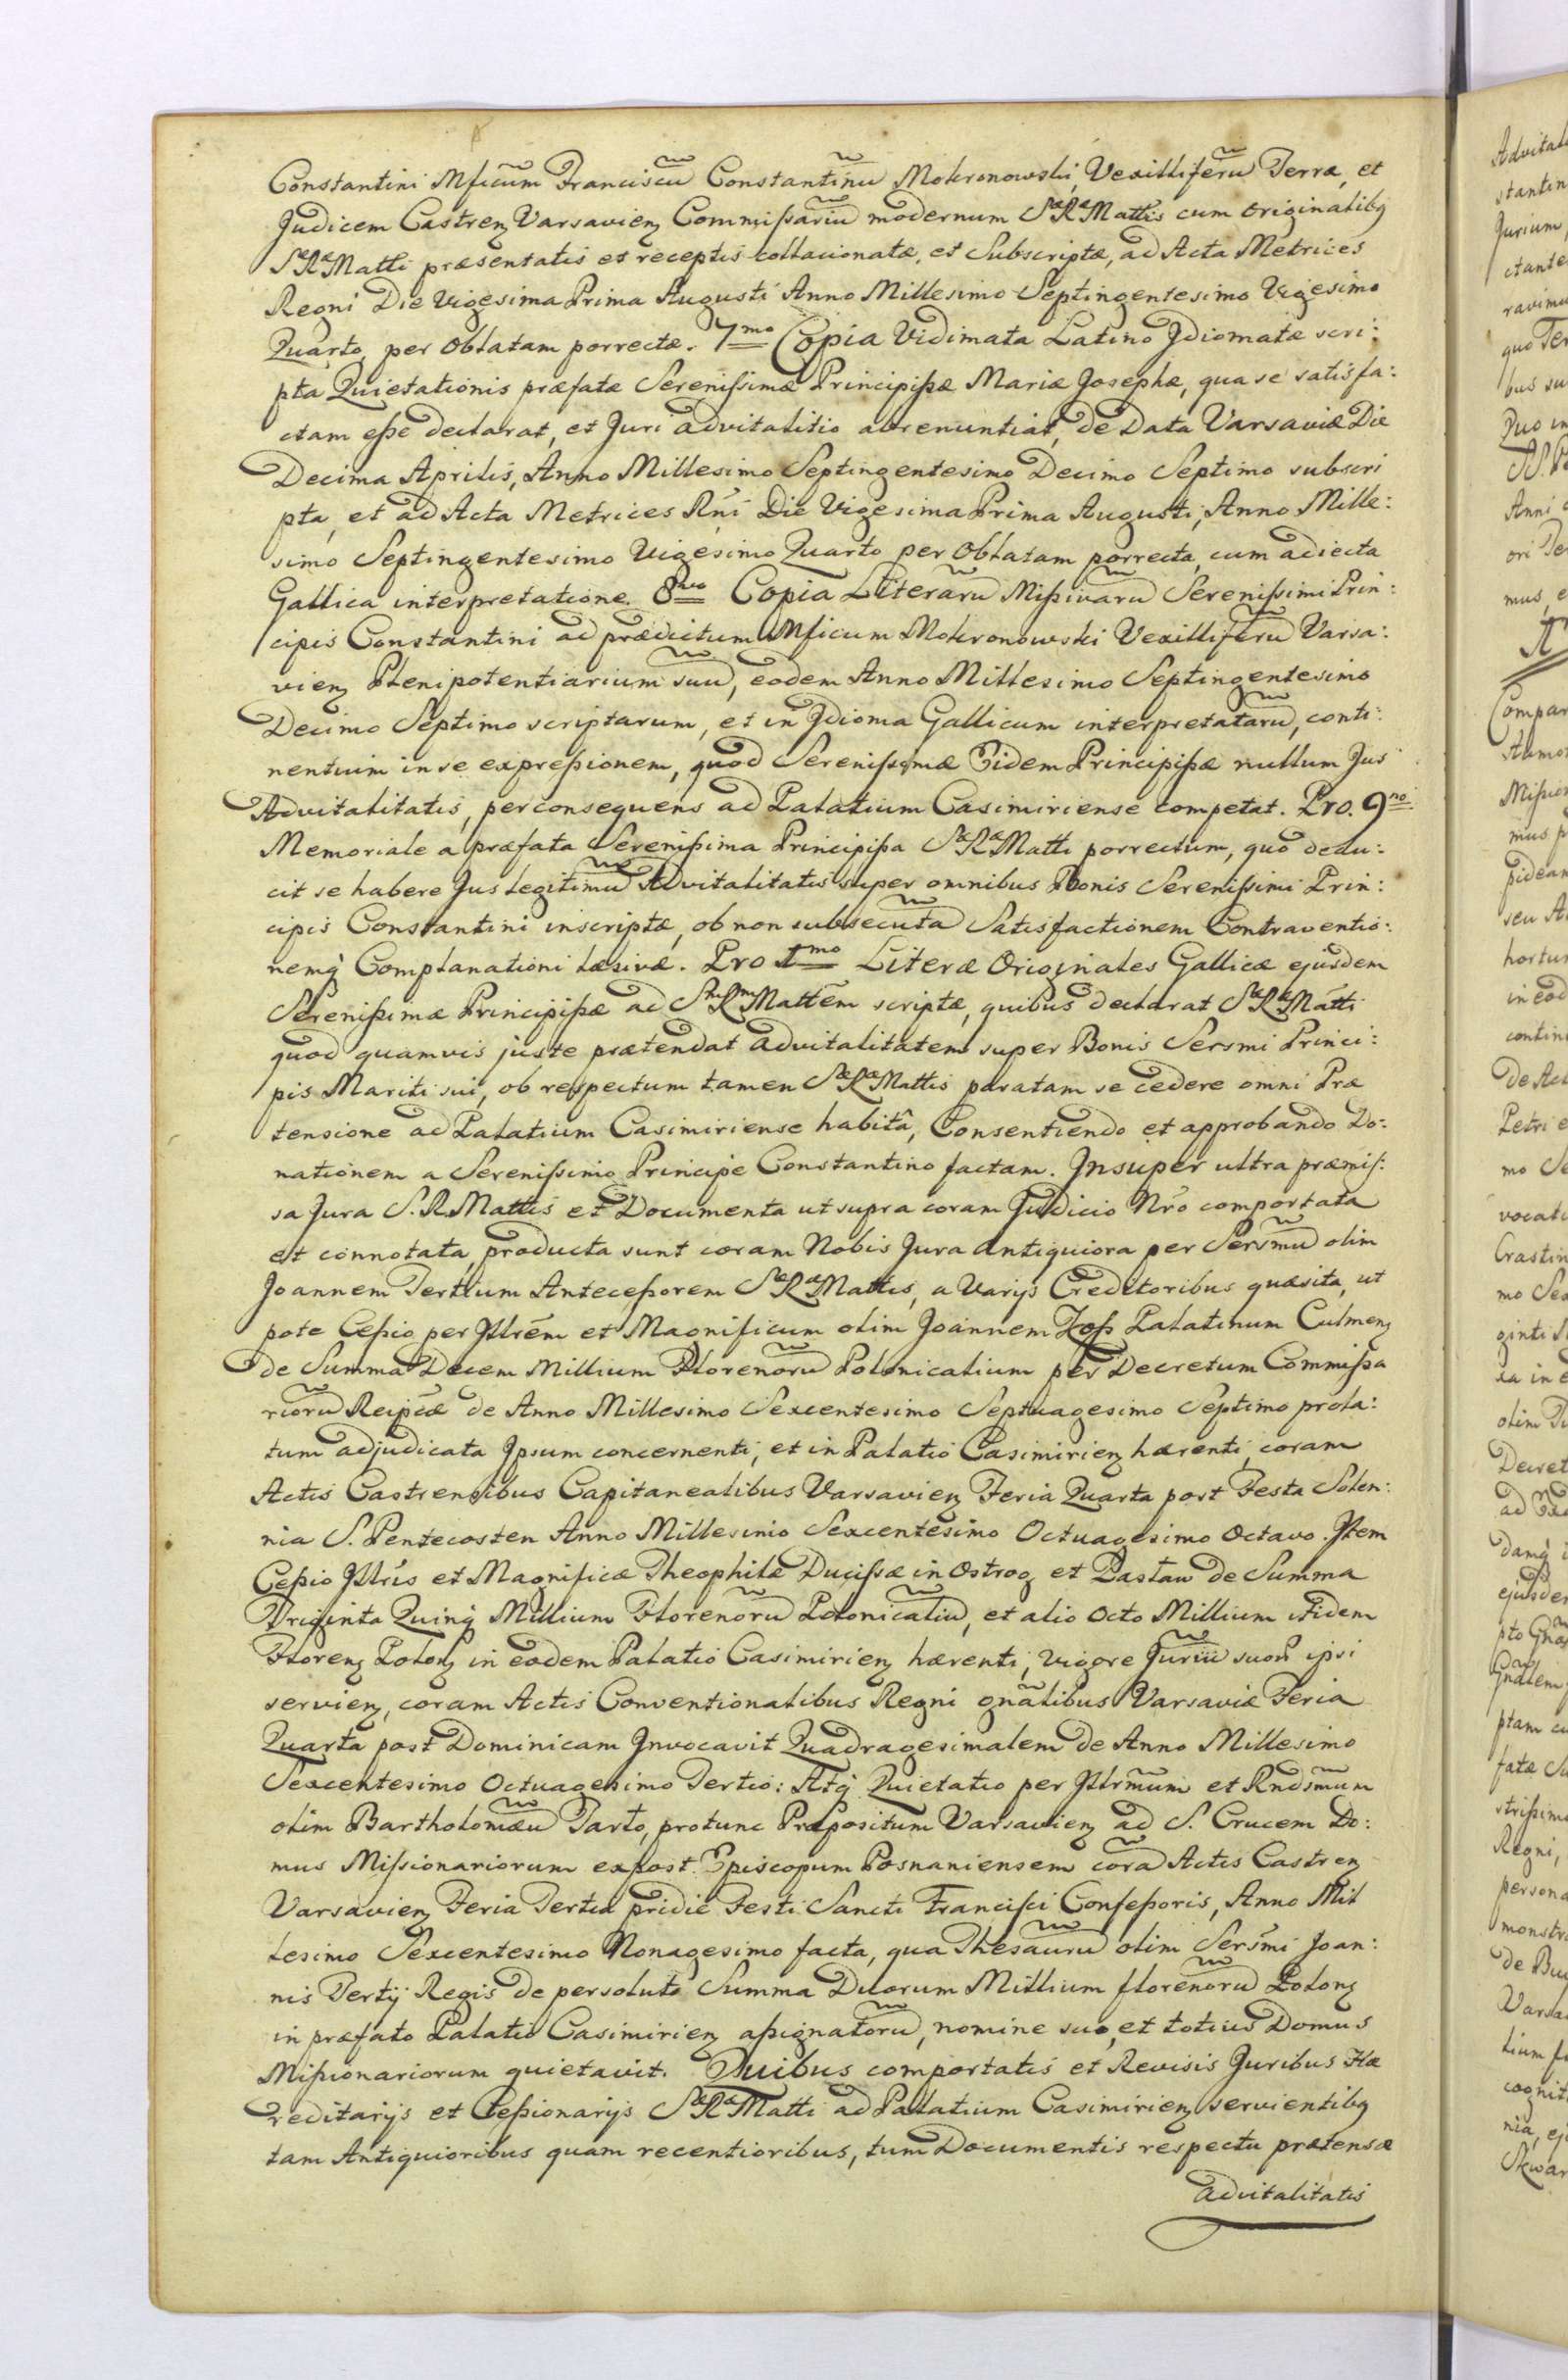 Constantini Mficum Franciscu Constantinu Mokronowski, Vexilliferu Terræ, et
Judicem Castrenz Varsavienz Commissariu modernum Sæ Ræ Mattis cum originalibq
Sæ Ræ Matti præsentatis et receptis collacionatæ, et Subscriptæ, ad Acta Metrices
Regni Die Vigesima Prima Augusti Anno Millesimo Septingentesimo Vigesimo
Quarto, per Oblatam porrectæ. 7mo Copia Vidimata Latino Jdiomatæ scri:
pta Quietationis præfatæ Serenissimæ Principissæ Mariæ Josephæ, qua se satisfa:
ctam esse declarat, et Juri advitalitio abrenuntiat, de Data Varsaviæ Die
Decima Aprilis, Anno Millesimo Septingentesimo Decimo Septimo subscri
pta, et ad Acta Metrices Rni Die Vigesima Prima Augusti, Anno Mille:
simo Septingentesimo Vigesimo Quarto per Oblatam porrecta, cum adiecta
Gallica interpretatione. 8vo Copia Literaru Missivaru Serenissimi Prin:
cipis Constantini ad prædictum Mficum Mokronowski Vexilliferu Varsa:
vienz Plenipotentiarium suu, eodem Anno Millesimo Septingentesimo
Decimo Septimo scriptarum, et in Jdioma Gallicum interpretataru, conti:
nentium in se expressionem, quod Serenissimæ Eidem Principissæ nullum Jus
Advitalitatis, per consequens ad Palatium Casimiriense competat. Pro. 9no
Memoriale a præfata Serenissima Principissa Sæ Ræ Matti porrectum, quo dedu:
cit se habere Jus legitimu Advitalitatis super omnibus Bonis Serenissimi Prin:
cipis Constantini inscriptæ, ob non subsecuta Satisfactionem Contraventio:
nemq Complanationi læsivæ. Pro 1mo Literæ Originales Gallicæ ejusdem
Serenissimæ Principissæ ad Sm Rm Mattem scriptæ, quibus declarat Sæ Ræ Matti
quod quamvis juste prætendat advitalitatem super Bonis Sersmi Princi:
pis Mariti sui, ob respectum tamen Sæ Ræ Mattis paratam se cedere omni Præ
tensione ad Palatium Casimiriense habitâ, Consentiendo et approbando Do:
nationem a Serenissimo Principe Constantino factam. Jnsuper ultra præmis:
sa Jura S. R. Mattis et Documenta ut supra coram Judicio Nro comportata
et connotata, producta sunt coram Nobis Jura antiquiora per Sersmu olim
Joannem Tertium Antecessorem Sæ Ræ Mattis, a Varijs Creditoribus quæsita, ut
pote Cessio per Jllrem et Magnificum olim Joannem Kos Palatinum Culmenz
de Summa Decem Millium Florenoru Polonicalium per Decretum Commissa
rioru Reipcæ de Anno Millesimo Sexcentesimo Septuagesimo Septimo prola:
tum adjudicata Jpsum concernenti, et in Palatio Casimirienz hærenti, coram
Actis Castrensibus Capitanealibus Varsavienz Feria Quarta post Festa Solen:
nia S. Pentecosten Anno Millesimo Sexcentesimo Octuagesimo Octavo. Jtem
Cessio Jllris et Magnificæ Theophilæ Ducissæ in Ostrog et Zaslaw de Summa
Triginta Quinq Millium Florenoru Polonicaliu, et alio Octo Millium itidem
Florenz Polonz in eodem Palatio Casimirienz hærenti, vigore Juriu suor ipsi
servienz, coram Actis Conventionalibus Regni gnalibus Varsaviæ Feria
Quarta post Dominicam Jnvocavit Quadragesimalem de Anno Millesimo
Sexcentesimo Octuagesimo Tertio: Atq Quietatio per Jllrmum et Rndsmum
olim Bartholomæu Tarlo, protunc Præpositum Varsavienz ad S. Crucem Do:
mus Missionariorum expost Episcopum Posnaniensem cora Actis Castrenz
Varsavienz Feria Tertia pridie Festi Sancti Francisci Confessoris, Anno Mil
lesimo Sexcentesimo Nonagesimo facta, qua Thesauru olim Sersmi Joan:
nis Tertij Regis de persoluta Summa Duorum Millium florenoru Polonz
in præfato Palatio Casimirienz assignatoru, nomine suo, et totius Domus
Missionariorum quietavit. Quibus comportatis et Revisis Juribus Hæ
reditarijs et Cessionarijs Sæ Ræ Matti ad Palatium Casimirienz servientibq
tam Antiquioribus quam recentioribus, tum Documentis respectu prætensæ
advitalitatis